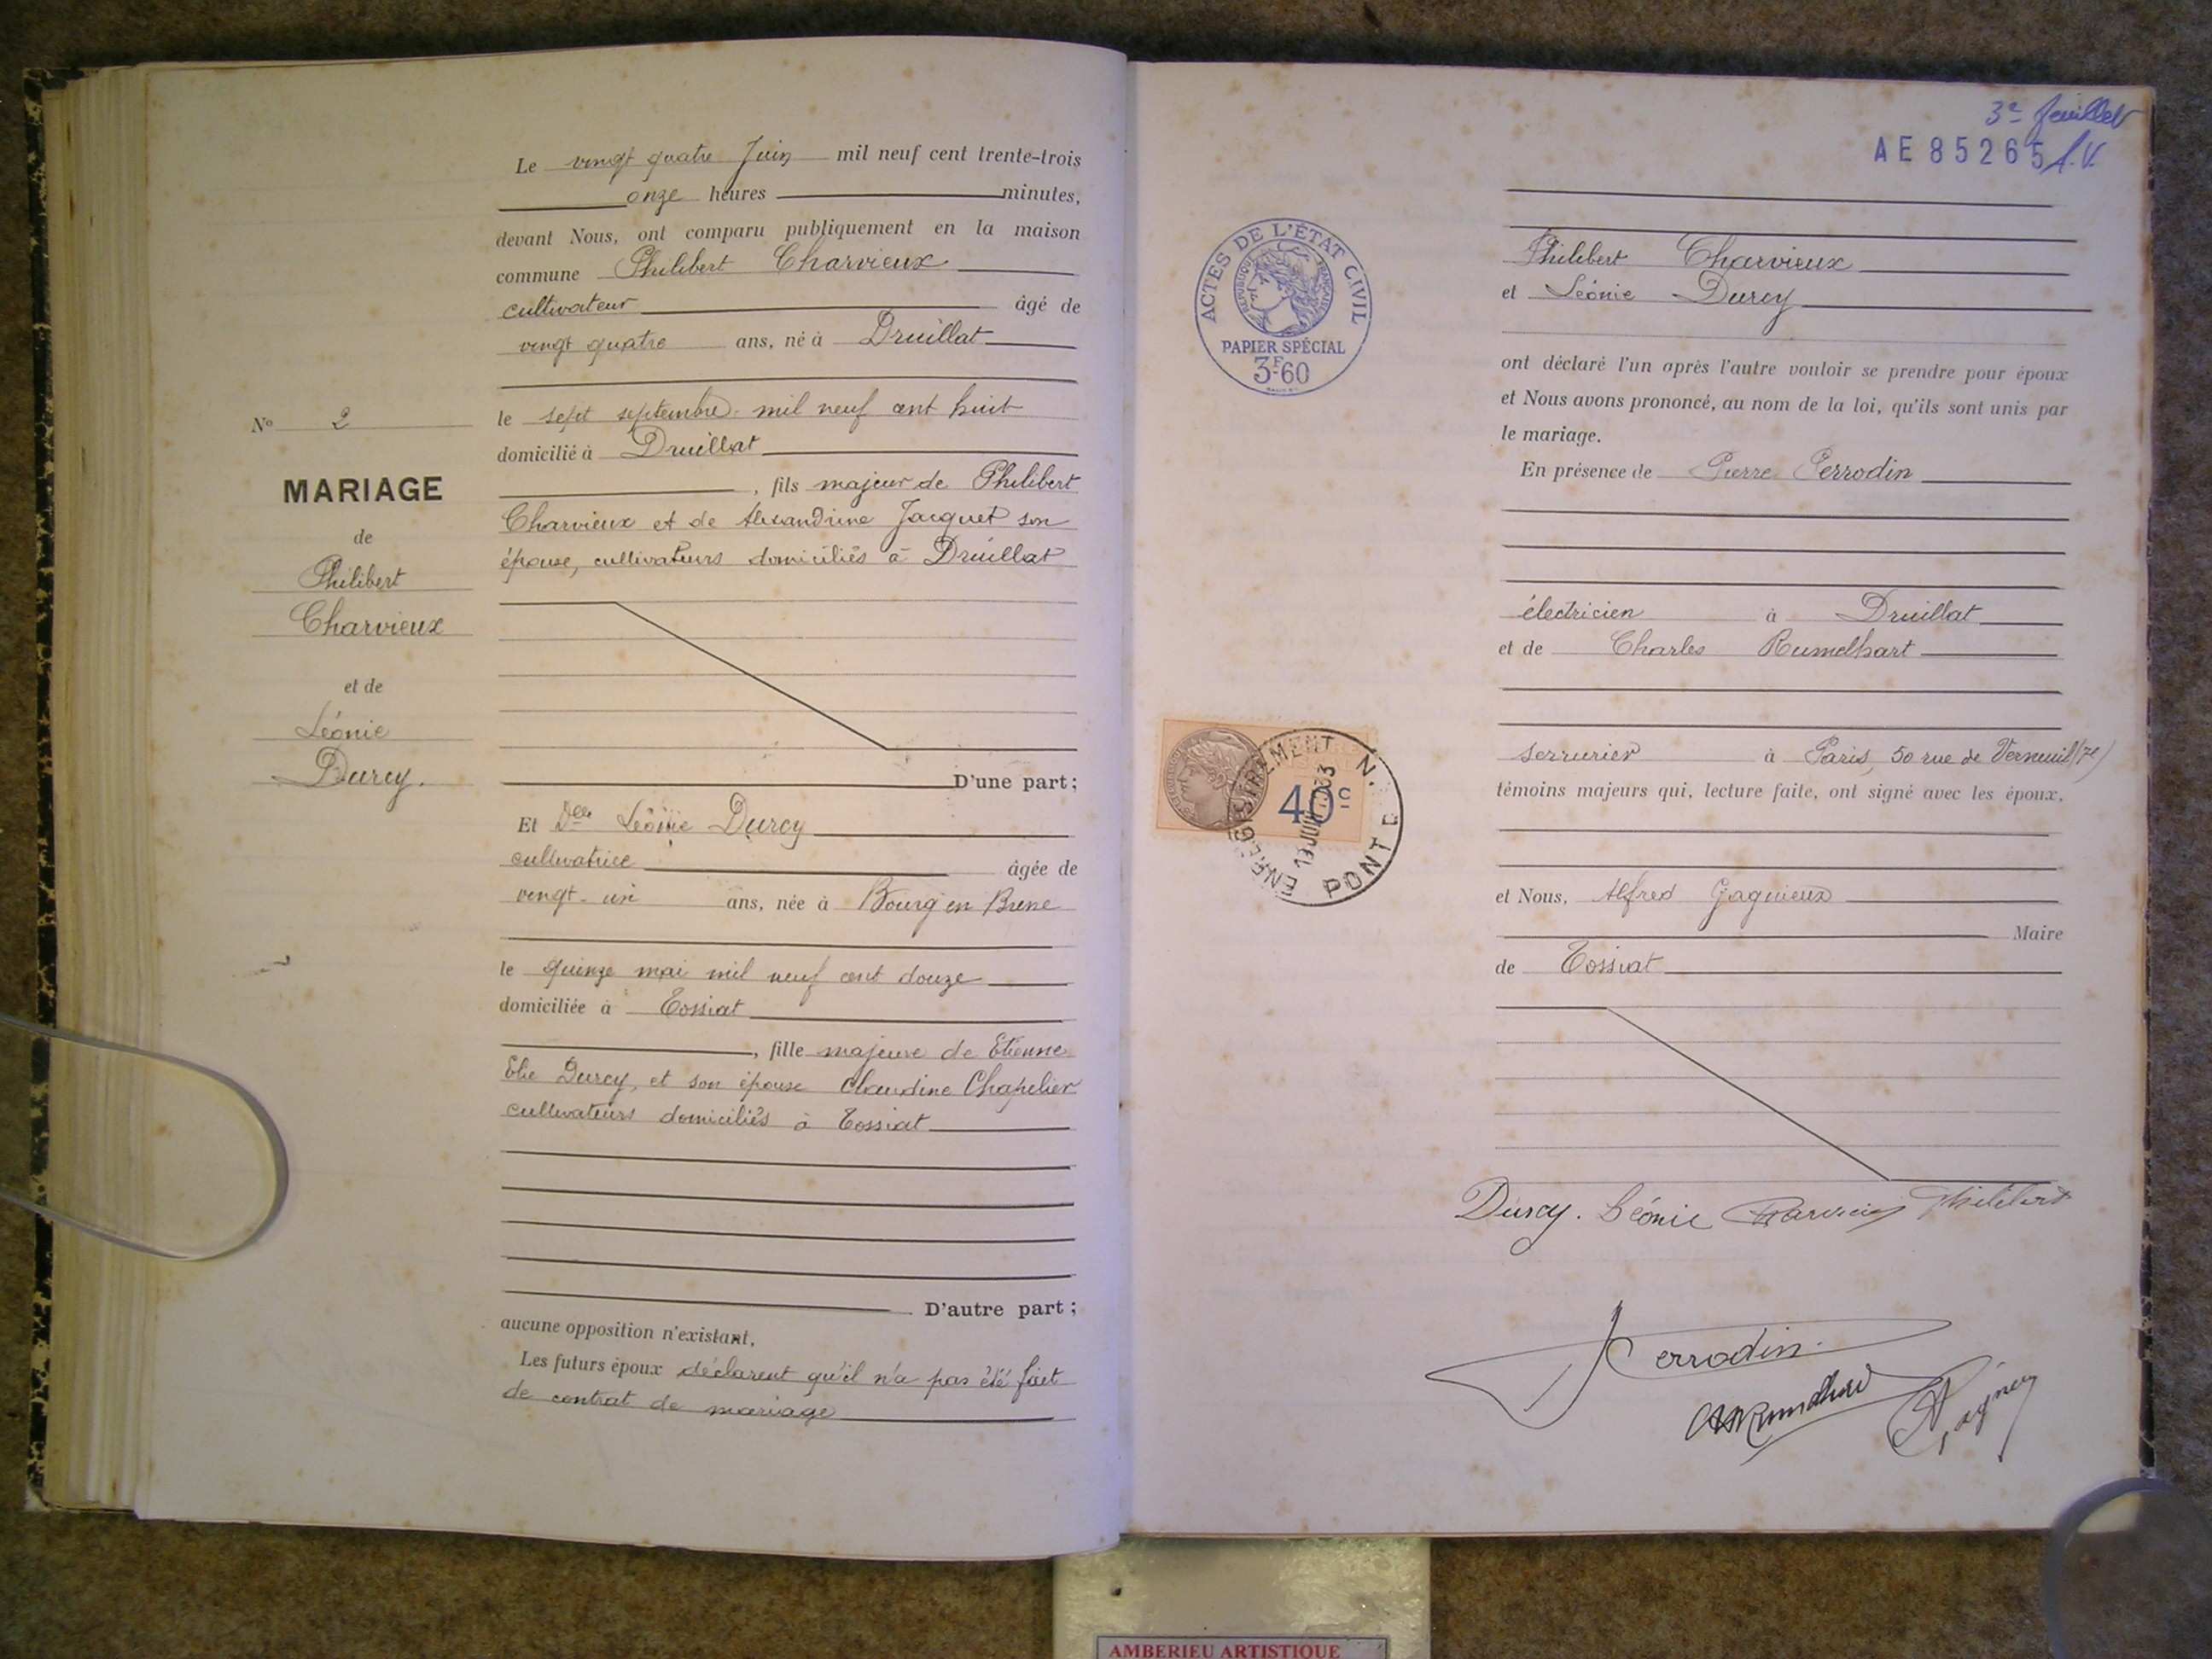 Le vingt quatre Juin mil neuf cent trente-trois
onze heures minutes,
devant Nous, ont comparu publiquement en la maison
commune Philibert Charvieux
cultivateur âgé de
vingt quatre ans, né à Druillat
le sept septembre mil neuf cent huit
domicilié à Druillat
, fils majeur de Philibert
Charvieux et de Alexandrine Jacquet son
épouse, cultivateurs domiciliés à Druillat
D'une part ;
Et Dlle Léonie Durcy
cultivatrice âgée de
vingt-un ans, née à Bourg en Bresse
le quinze mai mil neuf cent douze
domiciliée à Tossiat
, fille majeure de Etienne
Elie Durcy, et son épouse Claudine Chapelier
cultivateurs domiciliés à Tossiat
D'autre part ;
aucune opposition n'existant,
Les futurs époux déclarent qu'il n'a pas été fait
de contrat de mariage
No 2
MARIAGE
de
Philibert
Charvieux
et de
Léonie
Durcy.
3e feuillet
AE 85265 A.V.
ACTES DE L'ÉTAT CIVIL
RÉPUBLIQUE FRANÇAISE
PAPIER SPÉCIAL
3F60
Philibert Charvieux
et Léonie Durcy
ont déclaré l'un après l'autre vouloir se prendre pour époux
et Nous avons prononcé, au nom de la loi, qu'ils sont unis par
le mariage.
En présence de Pierre Perrodin
électricien à Druillat
et de Charles Rumelhart
serrurier à Paris, 50 rue de Verneuil (7e)
témoins majeurs qui, lecture faite, ont signé avec les époux,
et Nous, Alfred Gagnieux
Maire
de Tossiat
40c
ENREGISTREMENT
JUIN 1933
PONT D
Durcy. Léonie Charvieux Philibert
Perrodin
AMBERIEU ARTISTIQUE